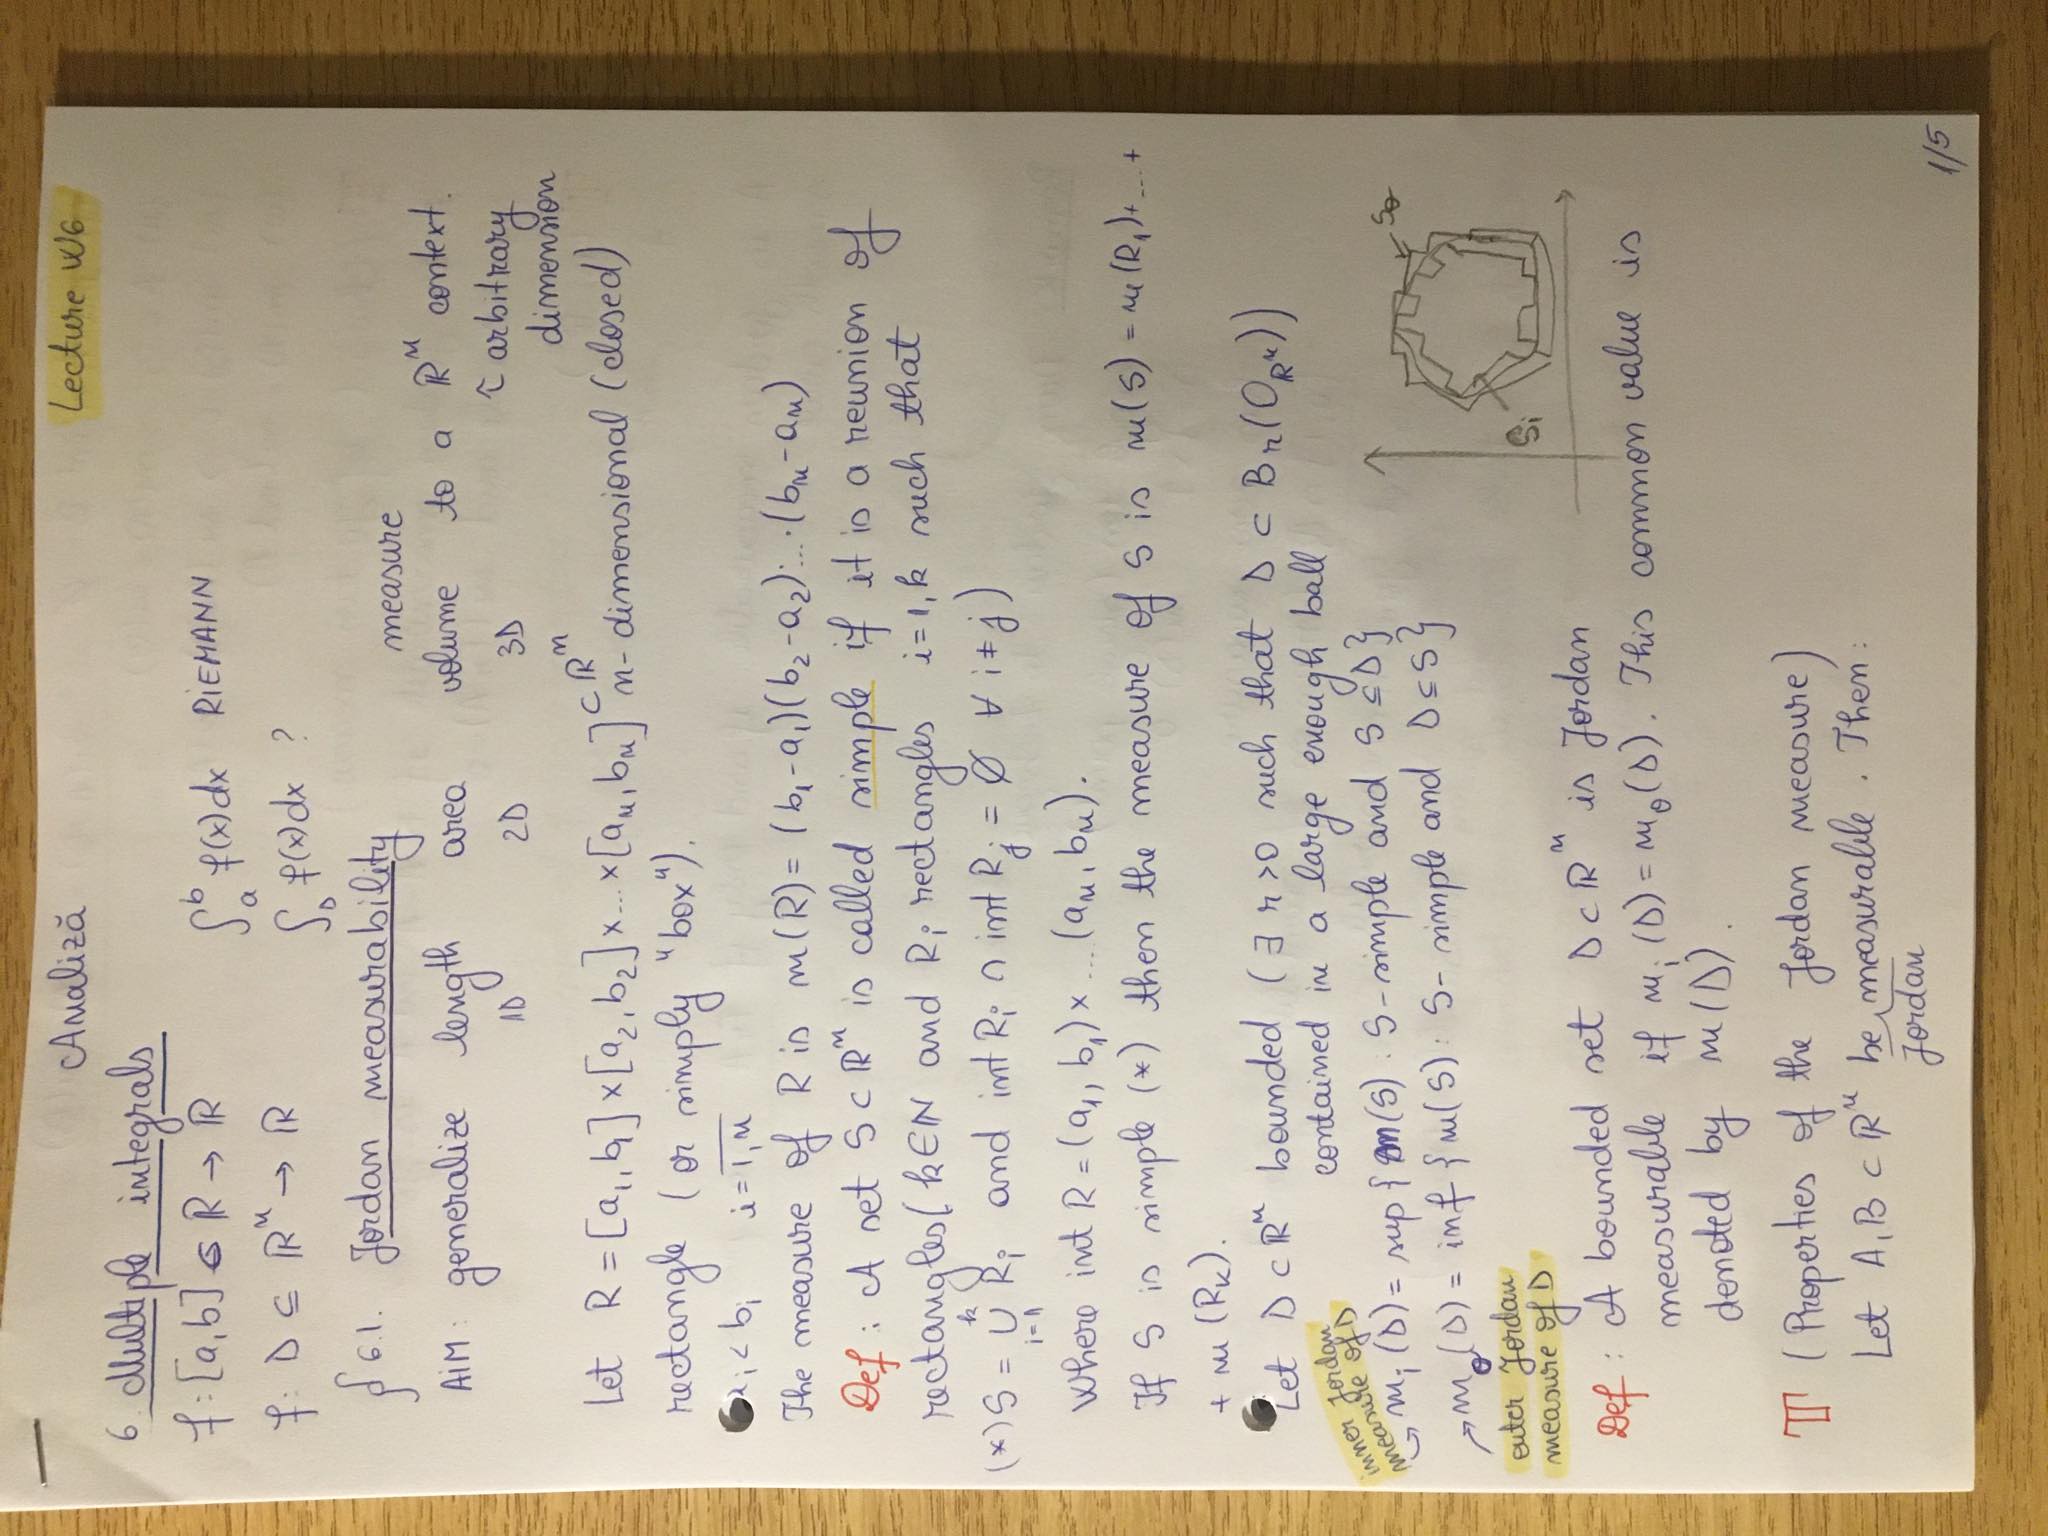 Analiză
Lecture W6
6. Multiple integrals
f: [a,b] ⊆ ℝ → ℝ ∫_a^b f(x)dx RIEMANN
f: D ⊆ ℝⁿ → ℝ ∫_D f(x)dx ?
§ 6.1. Jordan measurability
measure
AIM: generalize length area volume to a ℝⁿ context.
1D 2D 3D ↑ arbitrary
dimension
Let R = [a₁, b₁] × [a₂, b₂] × ... × [aₙ, bₙ] ⊂ ℝⁿ n-dimensional (closed)
rectangle (or simply "box").
aᵢ < bᵢ i = 1,n
The measure of R is m(R) = (b₁-a₁)(b₂-a₂)·...·(bₙ-aₙ)
Def: A set S ⊂ ℝⁿ is called simple if it is a reunion of
rectangles (k∈ℕ and Rᵢ rectangles i=1,k such that
(*) S = ∪_{i=1}^k Rᵢ and int Rᵢ ∩ int Rⱼ = ∅ ∀ i ≠ j)
Where int R = (a₁, b₁) × ... (aₙ, bₙ).
If S is simple (*) then the measure of S is m(S) = m(R₁)+...+
+ m(R_k).
Let D ⊂ ℝⁿ bounded (∃ r>0 such that D ⊂ B_r(0_ℝⁿ))
contained in a large enough ball
inner Jordan
measure of D
→ mᵢ(D) = sup{m(S) : S-simple and S ⊆ D}
→ m₀(D) = inf{m(S) : S-simple and D ⊆ S}
outer Jordan
measure of D
S₀
Sᵢ
Def: A bounded set D ⊂ ℝⁿ is Jordan
measurable if mᵢ(D) = m₀(D). This common value is
denoted by m(D).
T (Properties of the Jordan measure)
Let A, B ⊂ ℝⁿ be measurable. Then:
Jordan
1/5